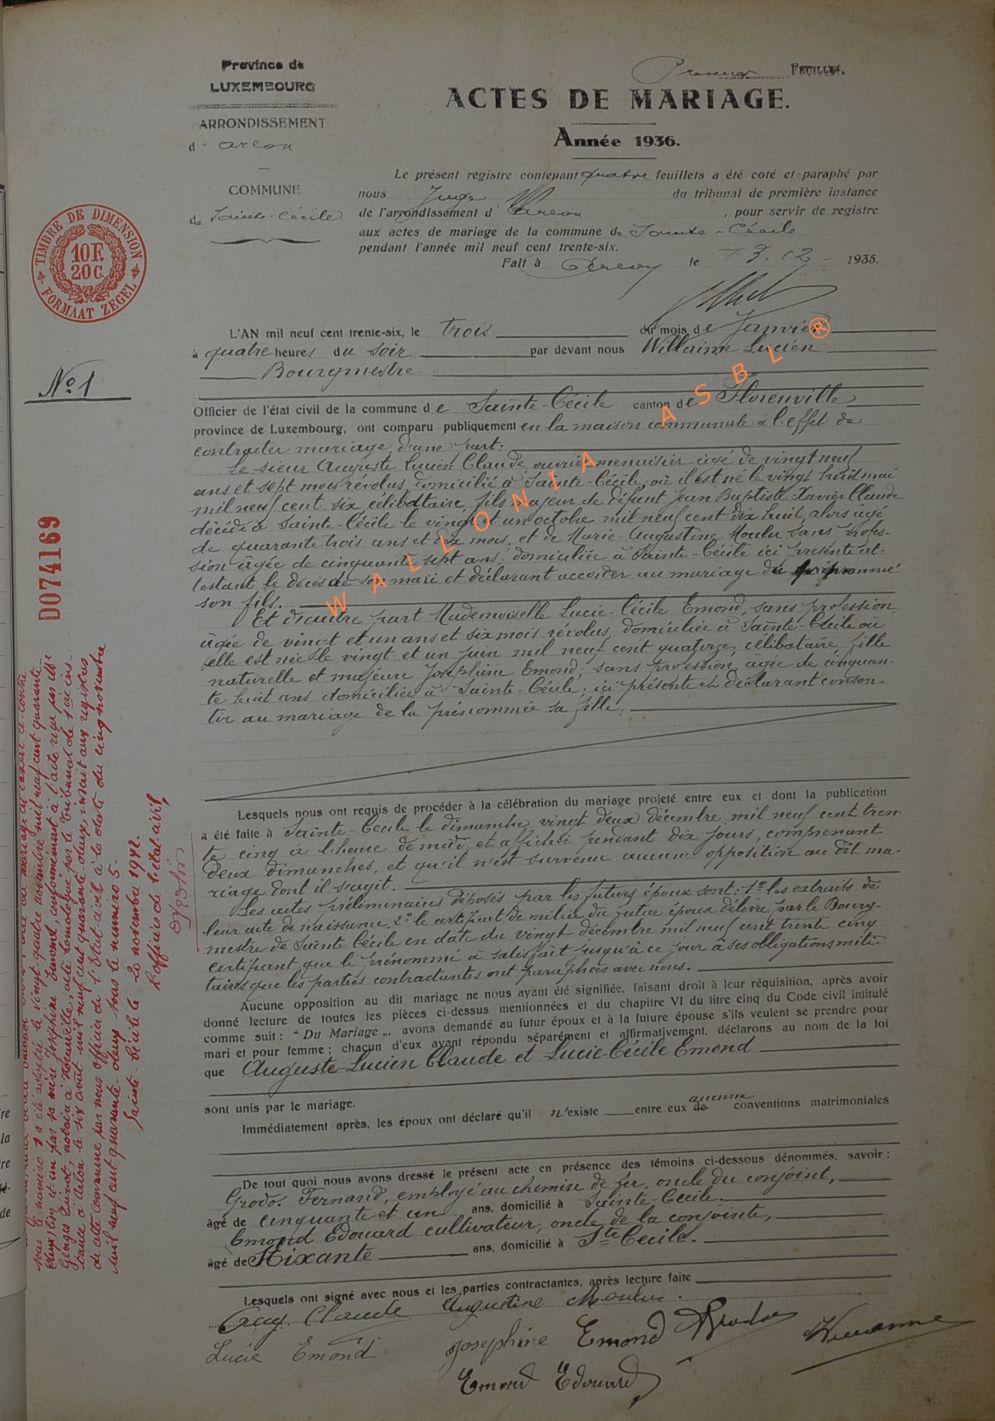 Premier FEUILLET.
Province de
LUXEMBOURG
ARRONDISSEMENT
d'Arlon
COMMUNE
de Sainte-Cécile
TIMBRE DE DIMENSION
10 F.
20 C.
FORMAAT ZEGEL
ACTES DE MARIAGE.
Année 1936.
Le présent registre contenant quatre feuillets a été coté et paraphé par
nous Juge du tribunal de première instance
de l'arrondissement d'Arlon, pour servir de registre
aux actes de mariage de la commune de Sainte-Cécile
pendant l'année mil neuf cent trente-six.
Fait à Arlon le 13.12 1935.
N° 1
L'AN mil neuf cent trente-six, le trois du mois de Janvier
à quatre heures du soir par devant nous Willaime Lucien
Bourgmestre
Officier de l'état civil de la commune de Sainte-Cécile canton de Florenville
province de Luxembourg, ont comparu publiquement en la maison communale à l'effet de
contracter mariage d'une part:
Le sieur Auguste Lucien Claude, ouvrier menuisier âgé de vingt neuf
ans et sept mois révolus, domicilié à Sainte-Cécile, où il est né le vingt huit mai
mil neuf cent six célibataire, fils majeur de défunt Jean Baptiste Xavier Claude
décédé à Sainte-Cécile le vingt et un octobre mil neuf cent dix huit, alors âgé
de quarante trois ans et dix mois, et de Marie Augustine Moulu sans profes-
sion âgée de cinquante sept ans, domiciliée à Sainte-Cécile ici présente at-
testant le décès de son mari et déclarant accéder au mariage du prénommé
son fils.
Et d'autre part Mademoiselle Lucie Cécile Emond, sans profession
âgée de vingt et un ans et six mois révolus, domiciliée à Sainte-Cécile où
elle est née le vingt et un juin mil neuf cent quatorze, célibataire, fille
naturelle et majeure Joséphine Emond, sans profession, agée de cinquan-
te huit ans domiciliée à Sainte-Cécile; ici présente et déclarant consen-
tir au mariage de la prénommée sa fille.
Lesquels nous ont requis de procéder à la célébration du mariage projeté entre eux et dont la publication
a été faite à Sainte-Cécile le dimanche vingt deux décembre mil neuf cent tren-
te cinq à l'heure de midi, et affiché pendant dix jours, comprenant
deux dimanches, et qu'il n'est survenue aucune opposition au dit ma-
riage dont il s'agit.
Les actes préliminaires déposés par les futurs époux sont: 1° les extraits de
leur acte de naissance. 2° le certificat de milice du futur époux délivré par le Bourg-
mestre de Sainte Cécile en date du vingt décembre mil neuf cent trente cinq
certifiant que le prénommé a satisfait jusqu'à ce jour à ses obligations mili-
taires que les parties contractantes ont paraphées avec nous.
Aucune opposition au dit mariage ne nous ayant été signifiée, faisant droit à leur réquisition, après avoir
donné lecture de toutes les pièces ci-dessus mentionnées et du chapitre VI du titre cinq du Code civil intitulé
comme suit: "Du Mariage", avons demandé au futur époux et à la future épouse s'ils veulent se prendre pour
mari et pour femme; chacun d'eux ayant répondu séparément et affirmativement, déclarons au nom de la loi
que Auguste-Lucien Claude et Lucie-Cécile Emond
sont unis par le mariage.
Immédiatement après, les époux ont déclaré qu'il n'existe entre eux de aucune conventions matrimoniales
De tout quoi nous avons dressé le présent acte en présence des témoins ci-dessous dénommés, savoir:
Grodos Fernand, employé au chemin de fer, oncle du conjoint,
âgé de cinquante et un ans, domicilié à Sainte-Cécile.
Emond Edouard cultivateur, oncle de la conjointe,
âgé de Soixante ans, domicilié à Ste Cécile.
Lesquels ont signé avec nous et les parties contractantes, après lecture faite
Claude Augustine Moulu
Lucie Emond Josephine Emond
Emond Edouard
D074169
sous le numéro 1 a été adopté le vingt-quatre novembre mil neuf cent quarante
et un par sa mère Joséphine Emond, conformément à l'acte reçu par
notaire à Florenville, acte homologué par le Tribunal de
à Arlon le six août mil neuf cent quarante deux, inscrit aux registres
de cette commune par nous officier de l'Etat civil à la date du cinq novembre
mil neuf cent quarante-deux sous le numéro 5.
Sainte-Cécile le 20 novembre 1942.
L'officier de l'état civil,
WALLONIA ASBL ®